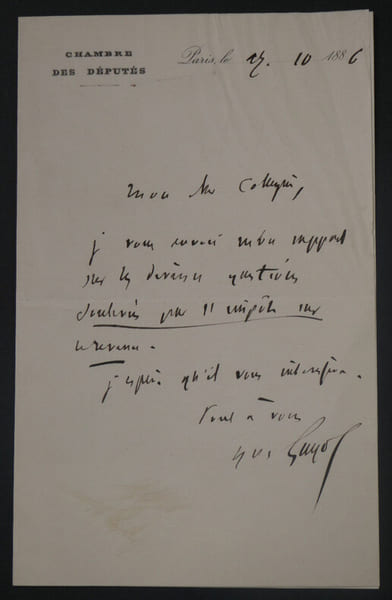 CHAMBRE
DES DÉPUTÉS
Paris, le 27. 10 1886
Mon cher Collègue,
je vous envoie mon rapport
sur les diverses questions
soulevées par l'impôt sur
le revenu.
j'espère qu'il vous intéressera.
Tout à vous
Yves Guyot